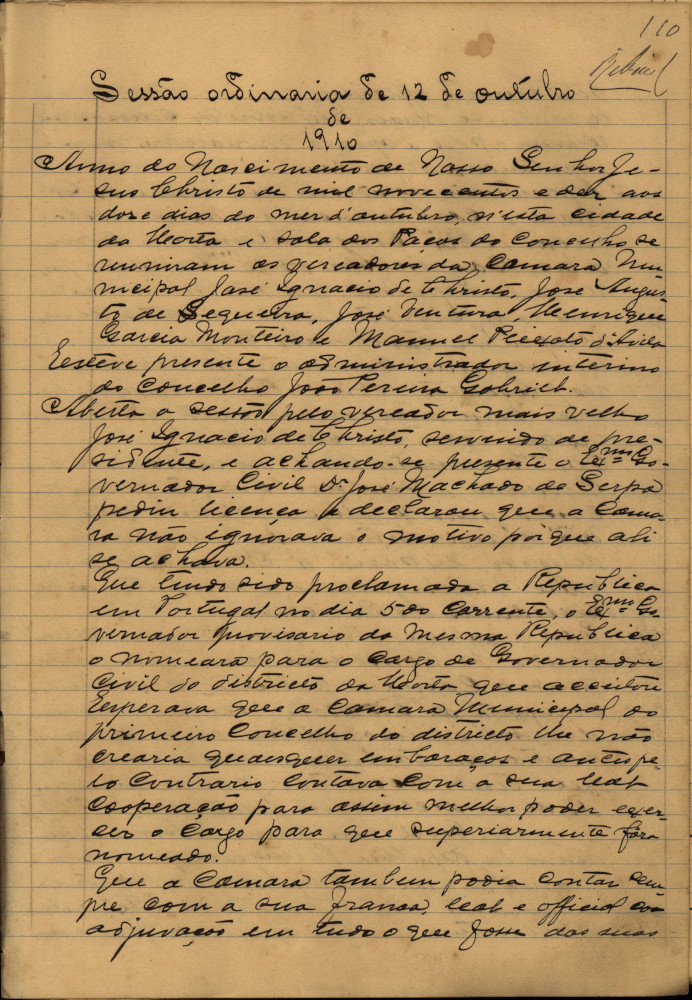 110
Sessão ordinaria de 12 de outubro
de
1910
Anno do Nascimento de Nosso Senhor Je-
sus Christo de mil novecentos e dez aos
doze dias do mez d'outubro, n'esta cidade
da Horta e sala dos Paços do Concelho se
reuniram os vereadores da Camara Mu-
nicipal José Ignacio de Christo, José Augus-
to de Sequeira, José Ventura, Henrique
Garcia Monteiro e Manuel Peixoto d'Avila
Esteve presente o administrador interino
do concelho João Pereira Gabriel.
Aberta a sessão pelo vereador mais velho
José Ignacio de Christo, servindo de pre-
sidente, e achando-se presente o Exmo Go-
vernador Civil Dr José Machado de Serpa
pediu licença e declarou que a Cama-
ra não ignorava o motivo porque ali
se achava.
Que tendo sido proclamada a Republica
em Portugal no dia 5 do corrente, o Exmo Go-
vernador provisorio da mesma Republica
o nomeara para o cargo de Governador
Civil do districto da Horta que acceitou
Esperava que a Camara Municipal do
primeiro Concelho do districto lhe não
crearia quaesquer embaraços e antes pe-
lo contrario contava com a sua leal
cooperação para assim melhor poder exer-
cer o cargo para que superiormente fôra
nomeado.
Que a Camara tambem podia contar sem-
pre com a sua franca, leal e official co-
adjuvação em tudo o que fosse das suas